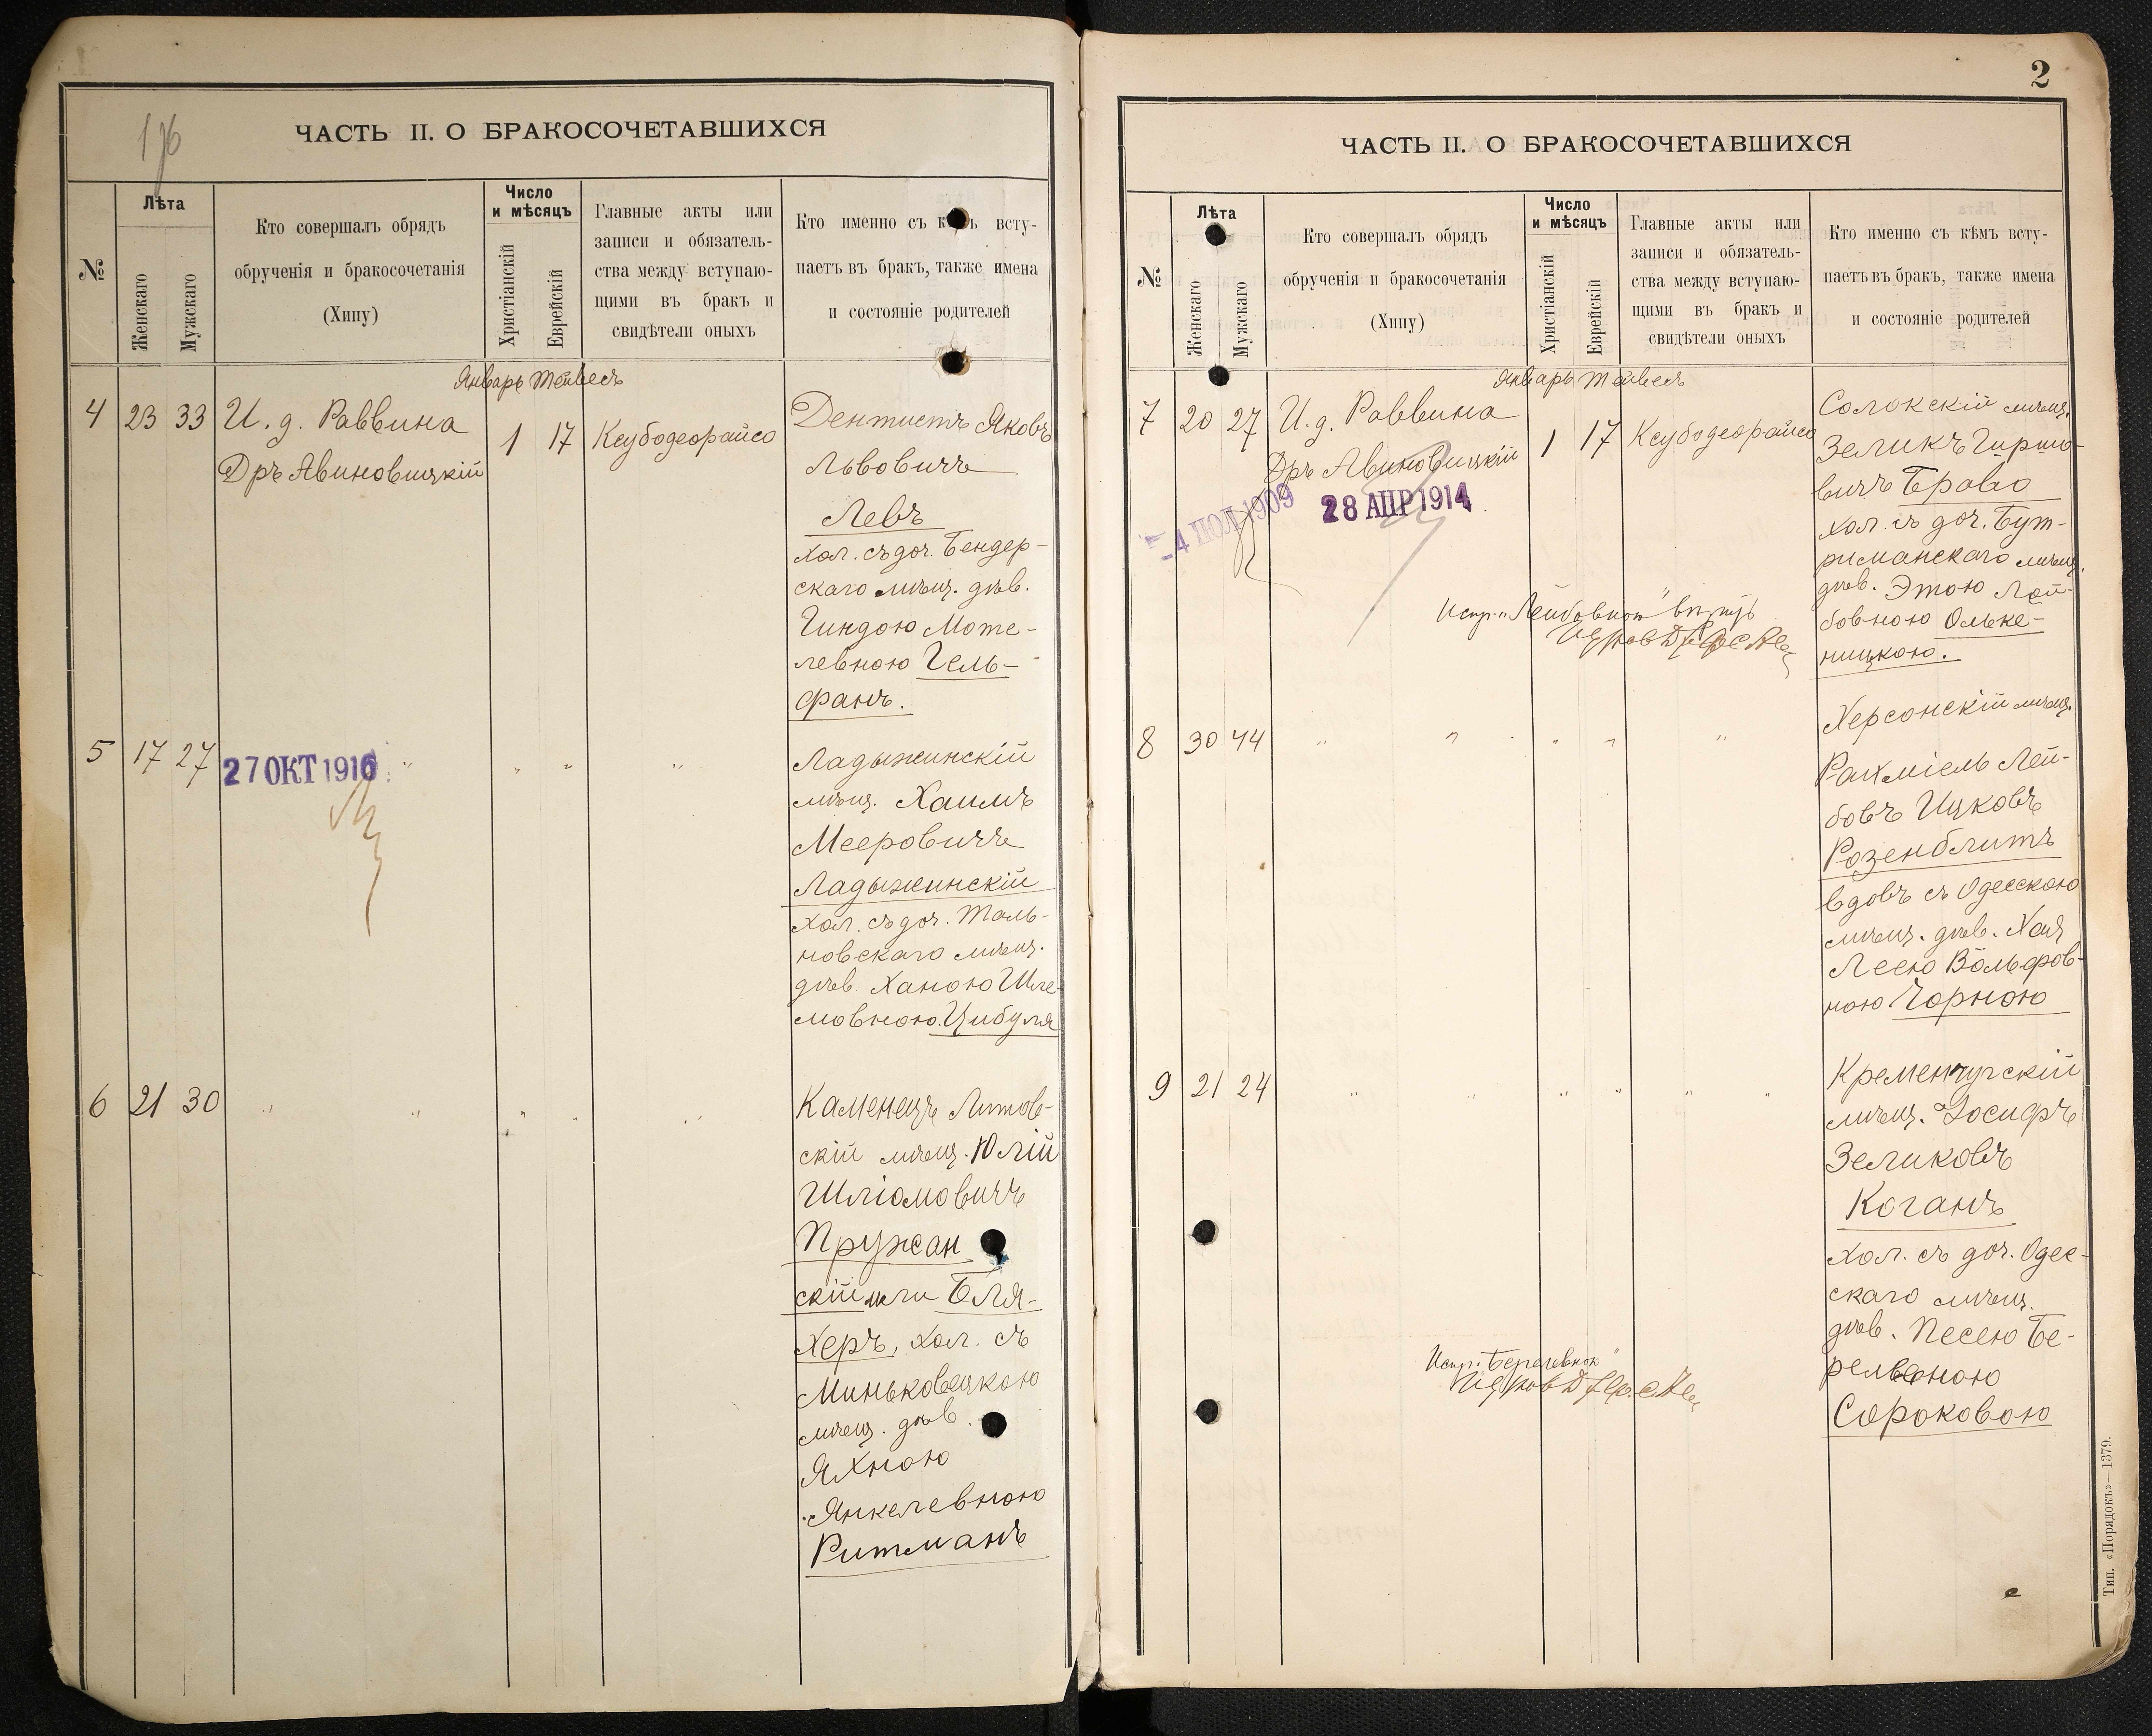 1906
ЧАСТЬ II. О БРАКОСОЧЕТАВШИХСЯ
№
Лѣта
Женскаго
Мужскаго
Кто совершалъ обрядъ
обрученія и бракосочетанія
(Хипу)
Число
и мѣсяцъ
Христіанскій
Еврейскій
Главные акты или
записи и обязатель-
ства между вступаю-
щими въ бракъ и
свидѣтели оныхъ
Кто именно съ к ъ всту-
паетъ въ бракъ, также имена
и состояніе родителей
Январь Тейвесъ
4 23 33 И. д. Раввина
Дръ Авиновицкій
1 17 Ксубодеорайсо
Дентистъ Яковъ
Львовичъ
Левъ
хол. съ доч. Бендер-
скаго мѣщ. дѣв.
Гиндою Моте-
левною Гель-
фанъ.
5 17 27 27 ОКТ 1916 " " " "
Ладыжинскій
мѣщ. Хаимъ
Мееровичъ
Ладыжинскій
хол. съ доч. Таль-
новскаго мѣщ.
дѣв. Ханою Шле-
мовною Цибуля
6 21 30 " " " " "
Каменецъ Литов-
скій мѣщ. Юлій
Шліомовичъ
Пружан
скій или Бля-
херъ, хол. съ
Миньковецкою
мѣщ. дѣв.
Яхною
Янкелевною
Ритманъ
2
ЧАСТЬ II. О БРАКОСОЧЕТАВШИХСЯ
№
Лѣта
Женскаго
Мужскаго
Кто совершалъ обрядъ
обрученія и бракосочетанія
(Хипу)
Число
и мѣсяцъ
Христіанскій
Еврейскій
Главные акты или
записи и обязатель-
ства между вступаю-
щими въ бракъ и
свидѣтели оныхъ
Кто именно съ кѣмъ всту-
паетъ въ бракъ, также имена
и состояніе родителей
Январь Тейвесъ
7 20 27 И. д. Раввина
Дръ Авиновицкій
1 17 Ксубодеорайсо
-4 ІЮЛ 1909
28 АПР 1914
Испр. "Лейбовною" вѣрить
Солокскій мѣщ.
Зеликъ Гиршо-
вичъ Браво
хол. съ доч. Бут-
риманскаго мѣщ.
дѣв. Этою Лей-
бовною Ольке-
ницкою.
8 30 44 " " " " "
Херсонскій мѣщ.
Рахміель Лей-
бовъ Ицковъ
Розенблитъ
вдовъ съ Одесскою
мѣщ. дѣв. Хая
Леею Вольфов-
ною Чорною
9 21 24 " " " " " "
Кременчугскій
мѣщ. Іосифъ
Зеликовъ
Коганъ
хол. съ доч. Одес-
скаго мѣщ.
дѣв. Песею Бе-
релевною
Сороковою
Испр. "Берелевною"
Тип. «Порядокъ»—1379.